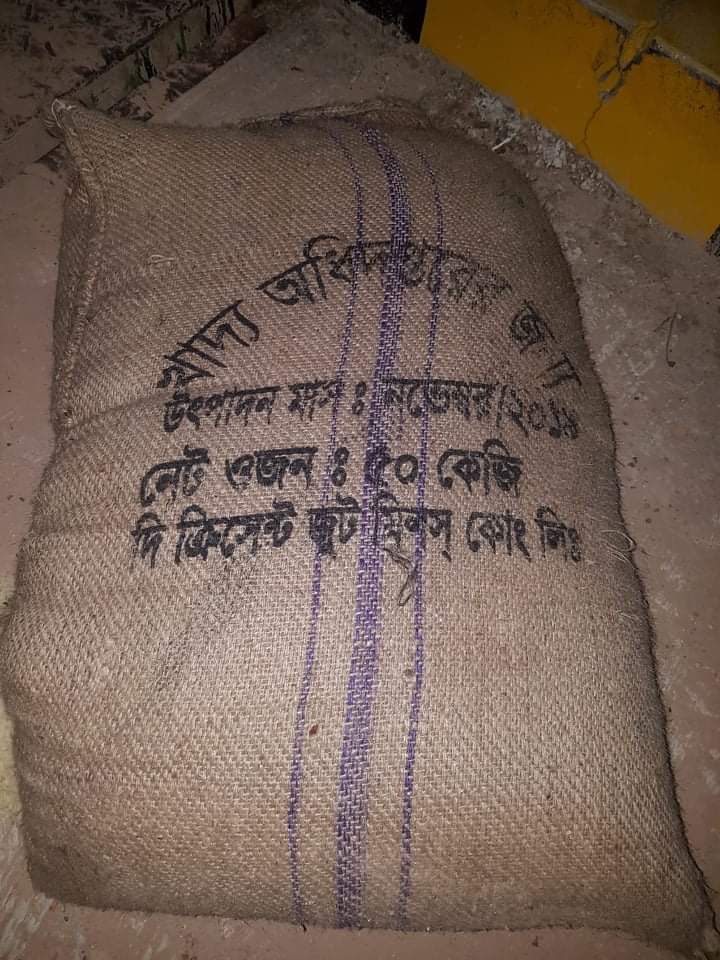 খাদ্য অধিদপ্তরের জন্য
উৎপাদন মাস ঃ নভেম্বর/২০১৯
নেট ওজন ঃ ৫০ কেজি
দি ক্রিসেন্ট জুট মিলস্ কোং লিঃ